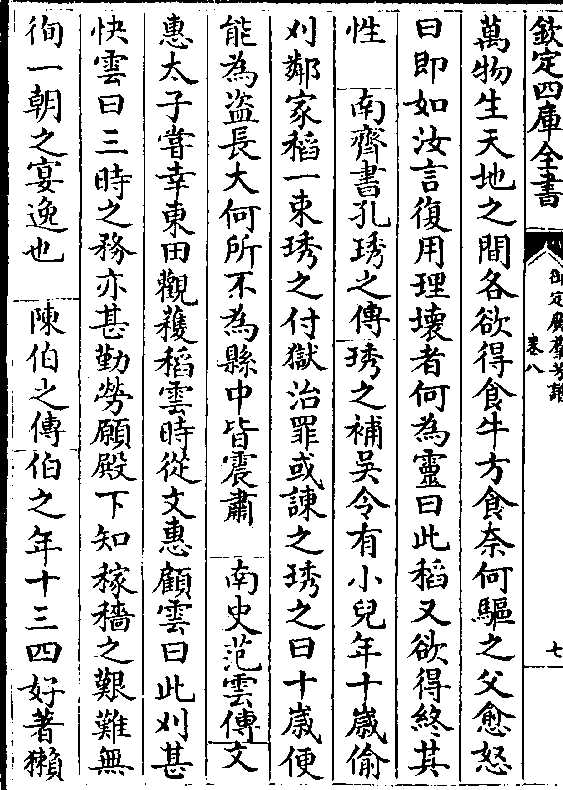 欽定四庫全書
御定廣羣芳譜
卷八
七
萬物生天地之間各欲得食牛方食奈何驅之父愈怒
曰即如汝言復用理壞者何為靈曰此稻又欲得終其
性　南齊書孔琇之傳琇之補吳令有小兒年十歲偷
刈鄰家稻一束琇之付獄治罪或諫之琇之曰十歲便
能為盜長大何所不為縣中皆震肅　南史范雲傳文
惠太子嘗幸東田觀穫稻雲時從文惠顧雲曰此刈甚
快雲曰三時之務亦甚勤勞願殿下知稼穡之艱難無
徇一朝之宴逸也　陳伯之傳伯之年十三四好著獺